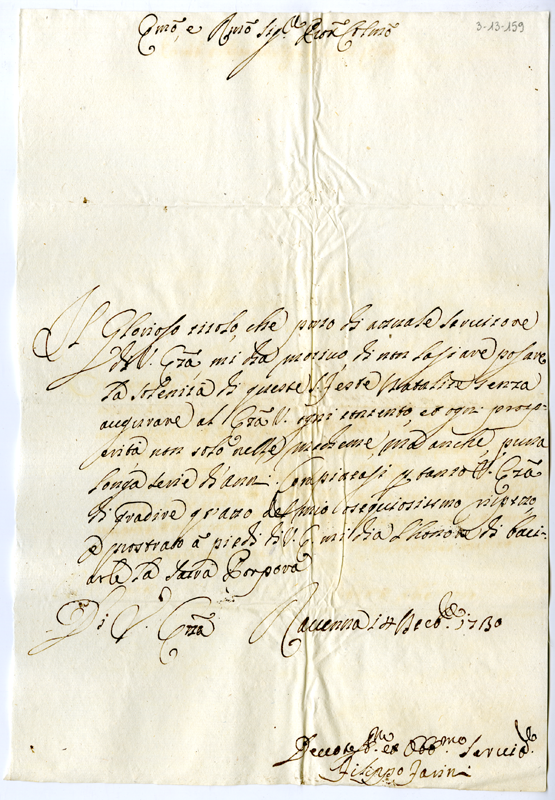 3-13-159
Emo, e Rmo Sigre Pron Colmo
Il Glorioso titolo, che porto di attuale servitore
di V. Emza mi dia motivo di non lasiare pasare
la solenità di queste S. feste Natalitie senza
augurare al Emza V. ogni contento, et ogni prosp-
erità non solo nelle medeme, mà anche, p una
longa serie d'anni. Compiacasi p tanto V. Emza
di gradire quanto del mio osequiosissimo
e prostrato à piedi di V. E. mi dia l'honore di baci-
arle la sacra Porpora
Di V. Emza Ravenna 14 Decbre 1730
Devotmo et Obbmo Servid.
Filippo